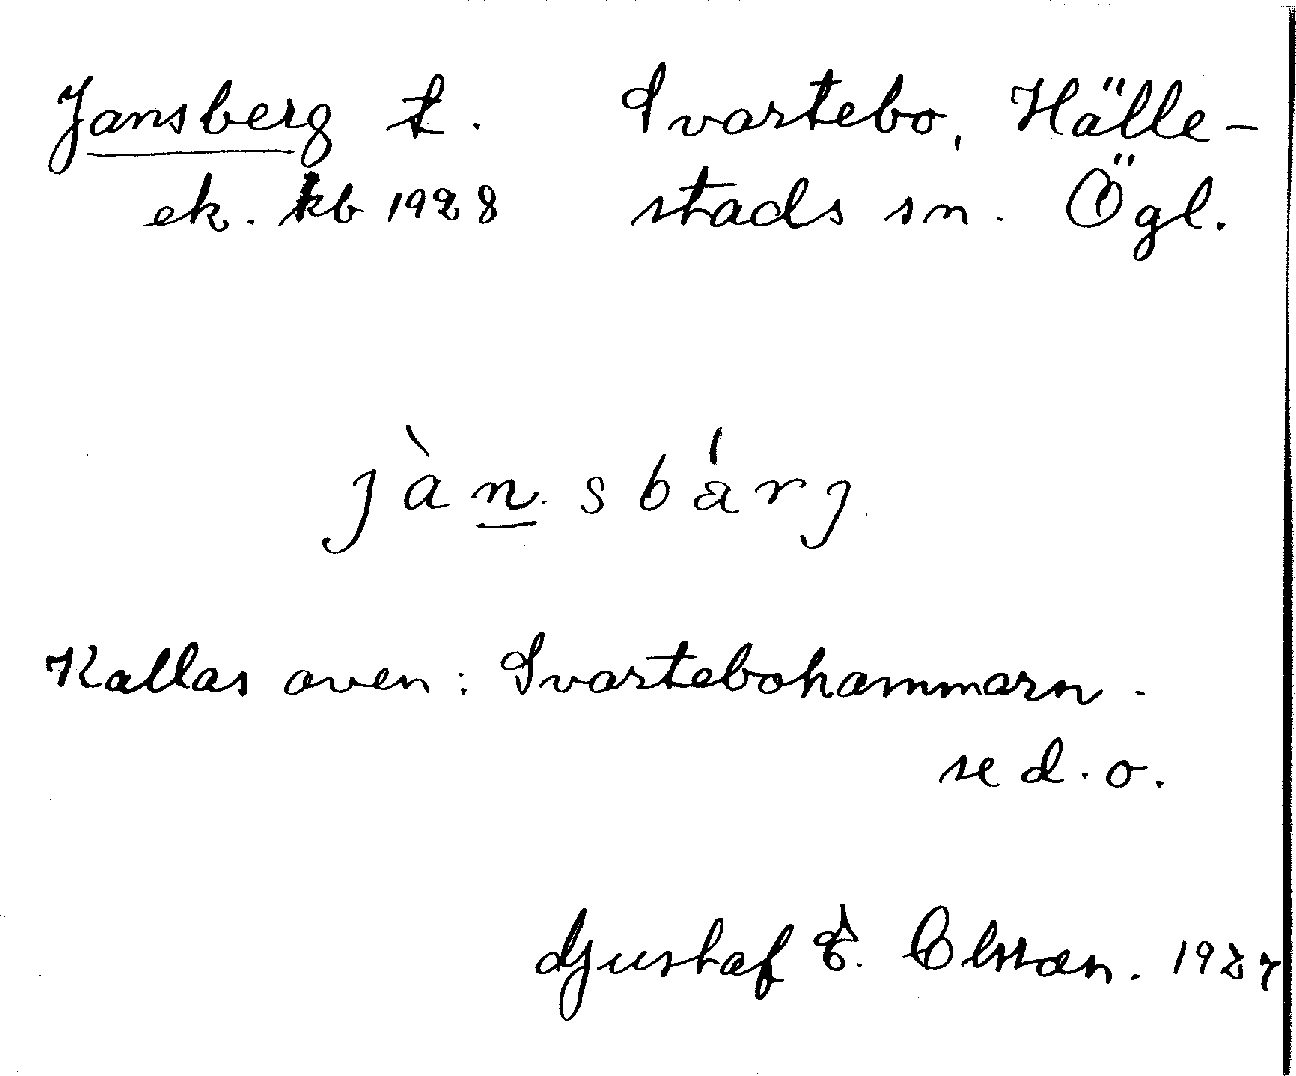 Jansberg t. Svartebo, Hälle-
ek. kb 1928 stads sn. Ögl.
jàn sbárj
Kallas även: Svartebohammarn.
se d.o.
Gustaf E. Olsson. 1927